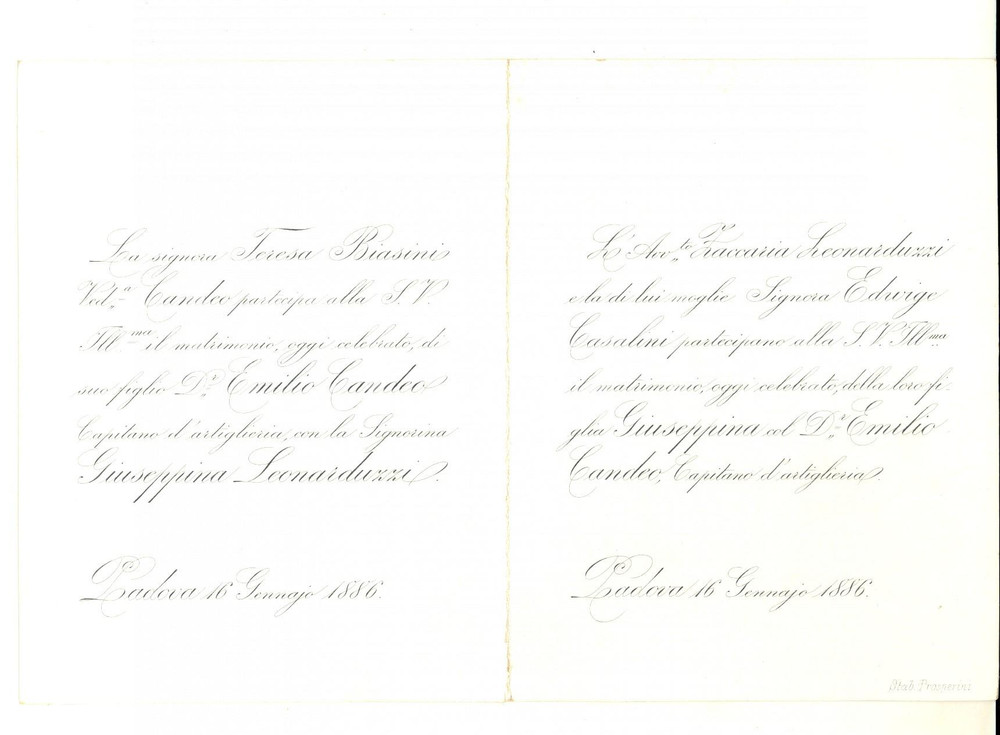 La signora Teresa Biasini
Ved.ª Candeo partecipa alla S. V.
Ill.ma il matrimonio, oggi celebrato, di
suo figlio D.r Emilio Candeo
Capitano d'artiglieria, con la Signorina
Giuseppina Leonarduzzi.
Padova 16 Gennajo 1886.
L'Avv.to Zaccaria Leonarduzzi
e la di lui moglie Signora Edwige
Casalini partecipano alla S. V. Ill.ma
il matrimonio, oggi celebrato, della loro fi-
glia Giuseppina col D.r Emilio
Candeo, Capitano d'artiglieria.
Padova 16 Gennajo 1886.
Stab. Prosperini